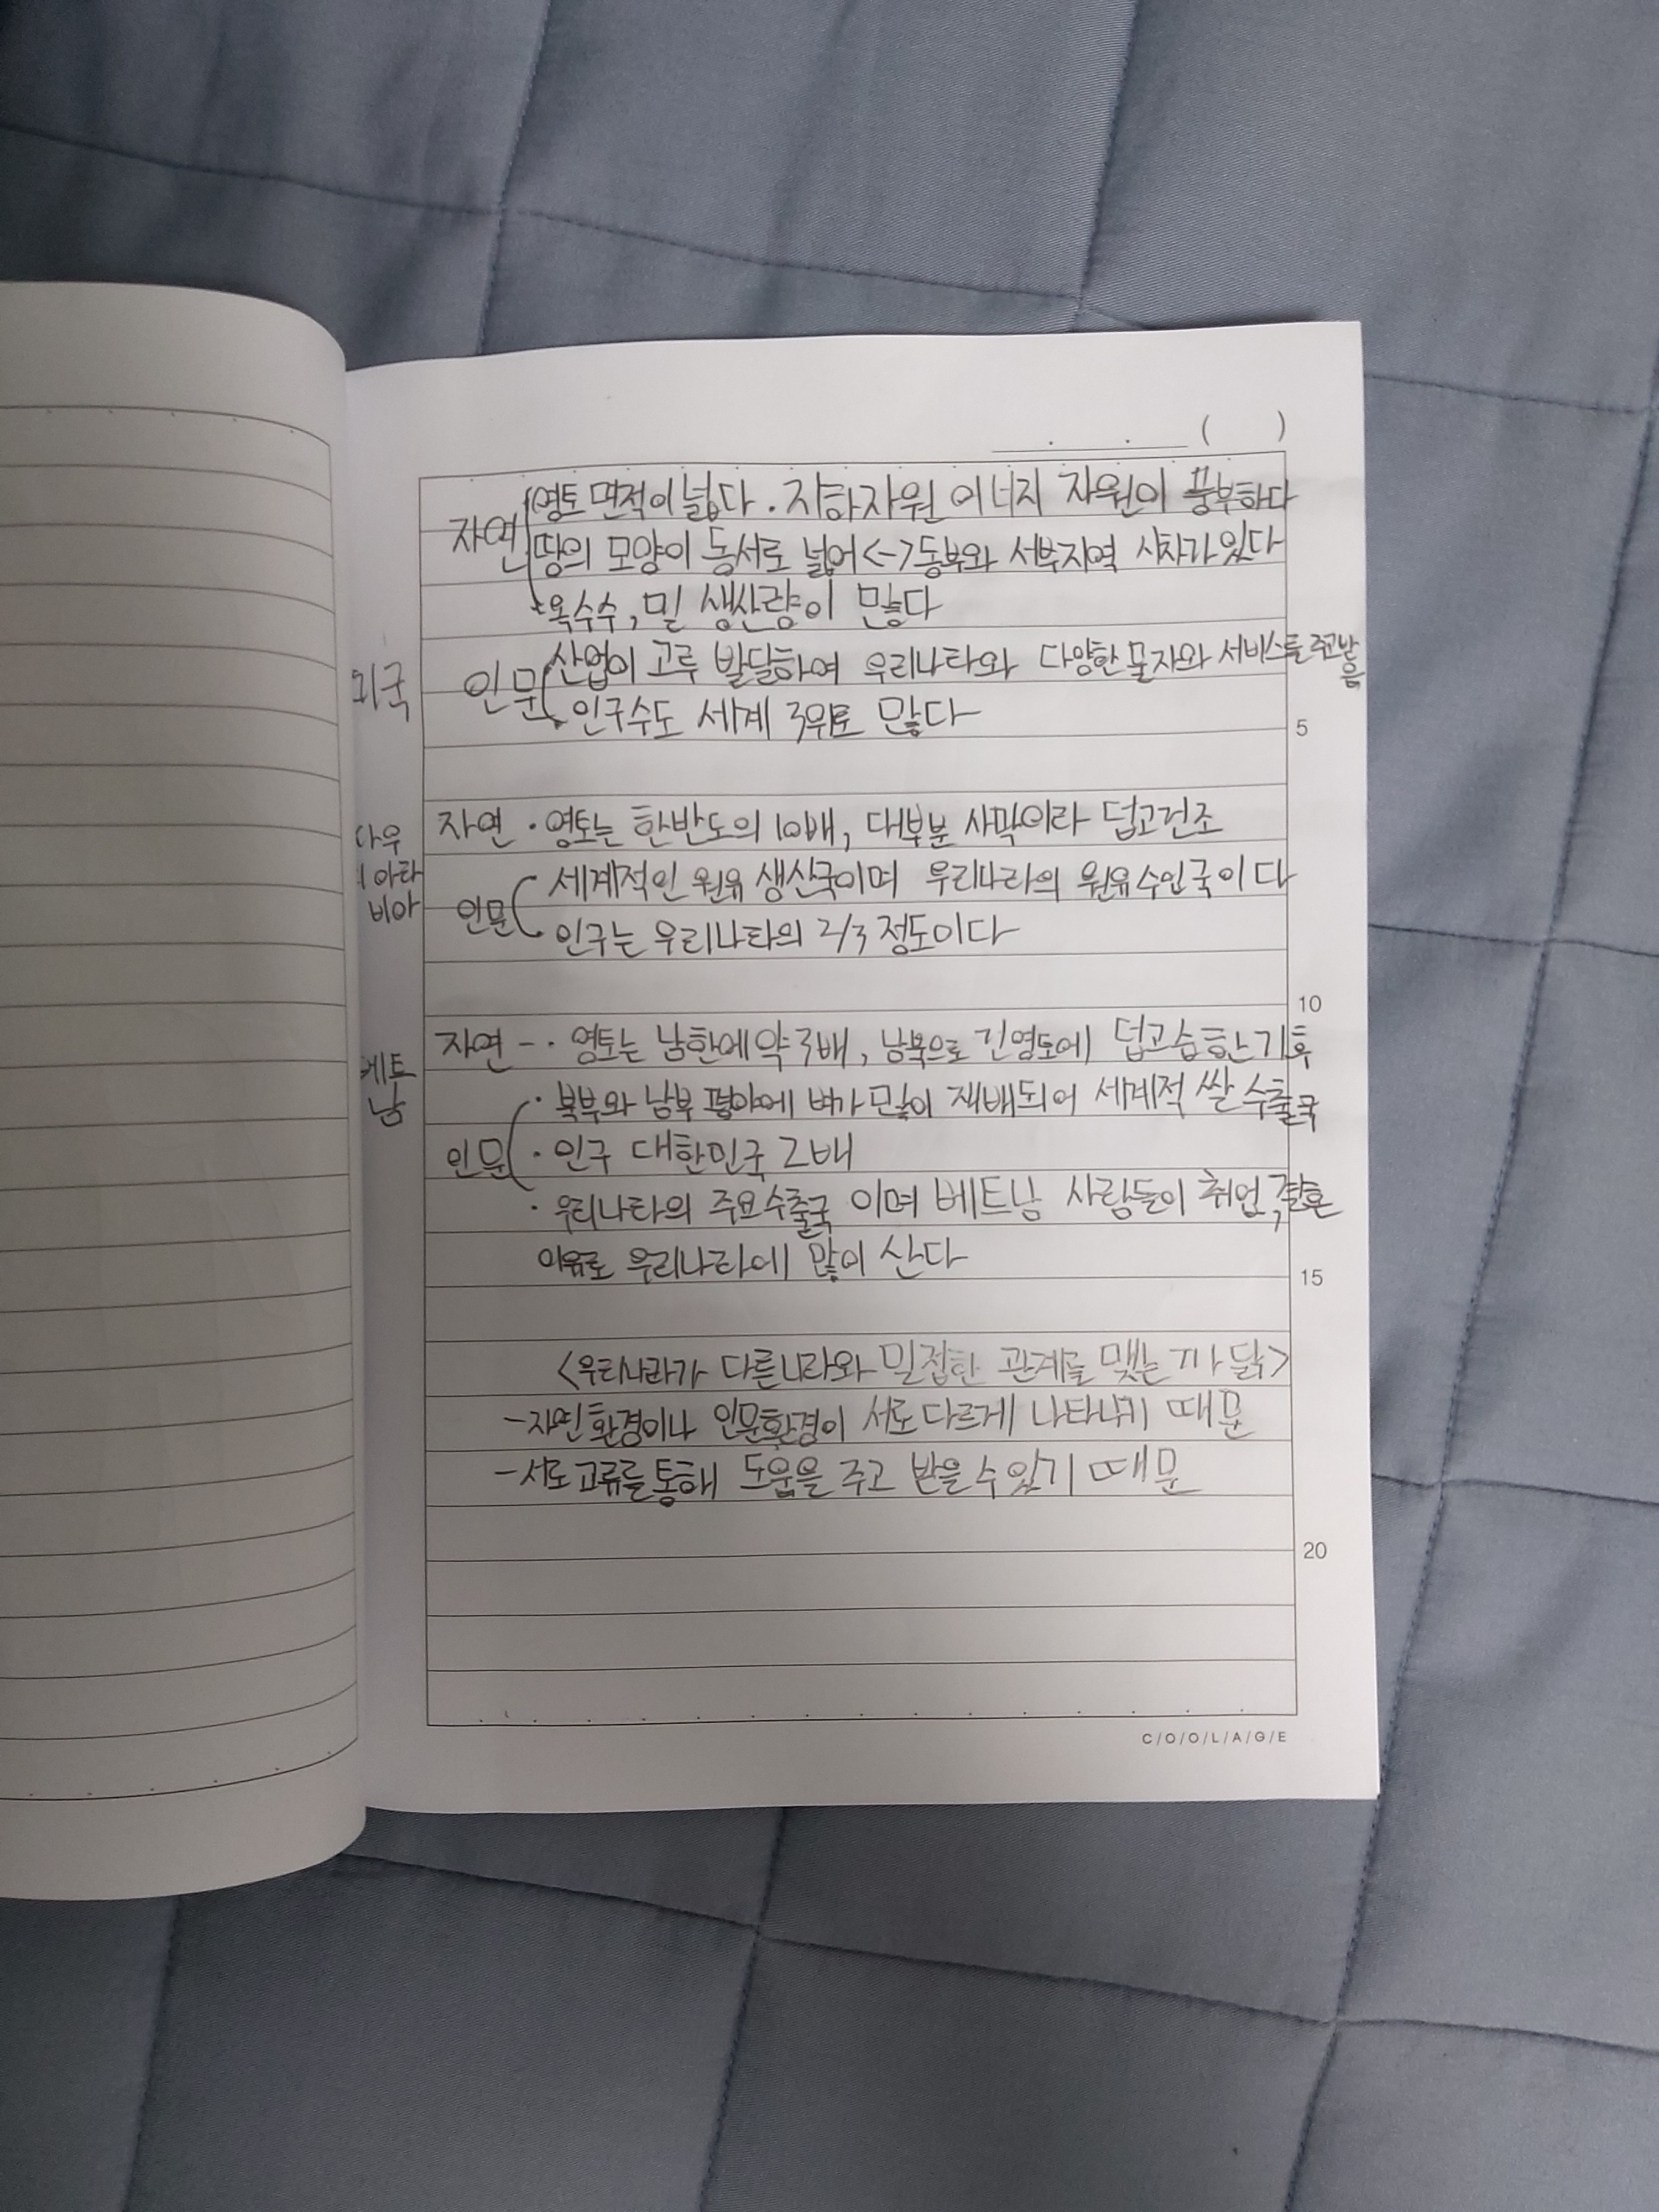 ( )
자연 영토 면적이 넓다 · 지하자원 에너지 자원이 풍부하다
땅의 모양이 동서로 넓어 <-> 동부와 서부지역 시차가 있다
옥수수, 밀 생산량이 많다
미국 인문 산업이 고루 발달하여 우리나라와 다양한 물자와 서비스를 주고받음
· 인구수도 세계 3위로 많다
5
자연 · 영토는 한반도의 10배, 대부분 사막이라 덥고건조
사우디아라비아 인문 세계적인 원유 생산국이며 우리나라의 원유 수입국이다
인구는 우리나라의 2/3 정도이다
10
베트남 자연 - · 영토는 남한에 약 3배, 남북으로 긴영토에 덥고 습한 기후
인문 · 북부와 남부 평야에 벼가 많이 재배되어 세계적 쌀 수출국
· 인구 대한민국 2배
· 우리나라의 주요수출국 이며 베트남 사람들이 취업, 결혼
이유로 우리나라에 많이 산다
15
<우리나라가 다른나라와 밀접한 관계를 맺는 까닭>
- 자연환경이나 인문환경이 서로 다르게 나타나기 때문
- 서로 교류를 통해 도움을 주고 받을 수 있기 때문
20
C/O/O/L/A/G/E